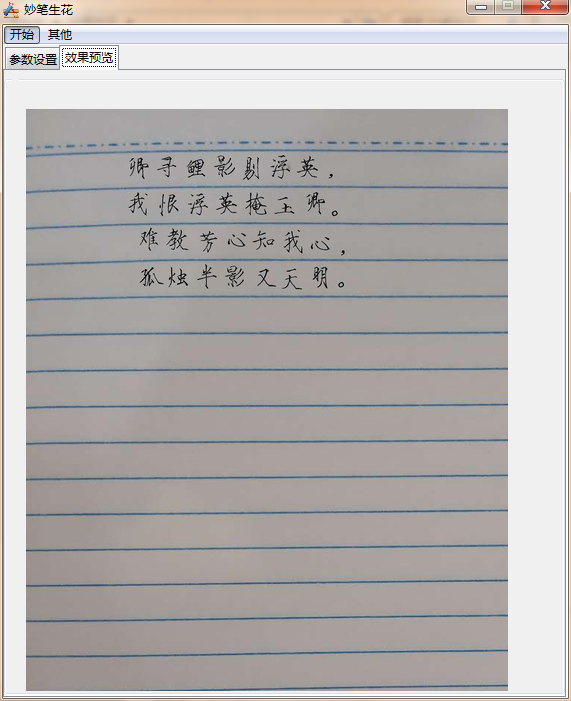 妙笔生花
开始 其他
参数设置 效果预览
卿寻鲤影剔浮英，
我恨浮英掩玉卿。
难教芳心知我心，
孤烛半影又天明。